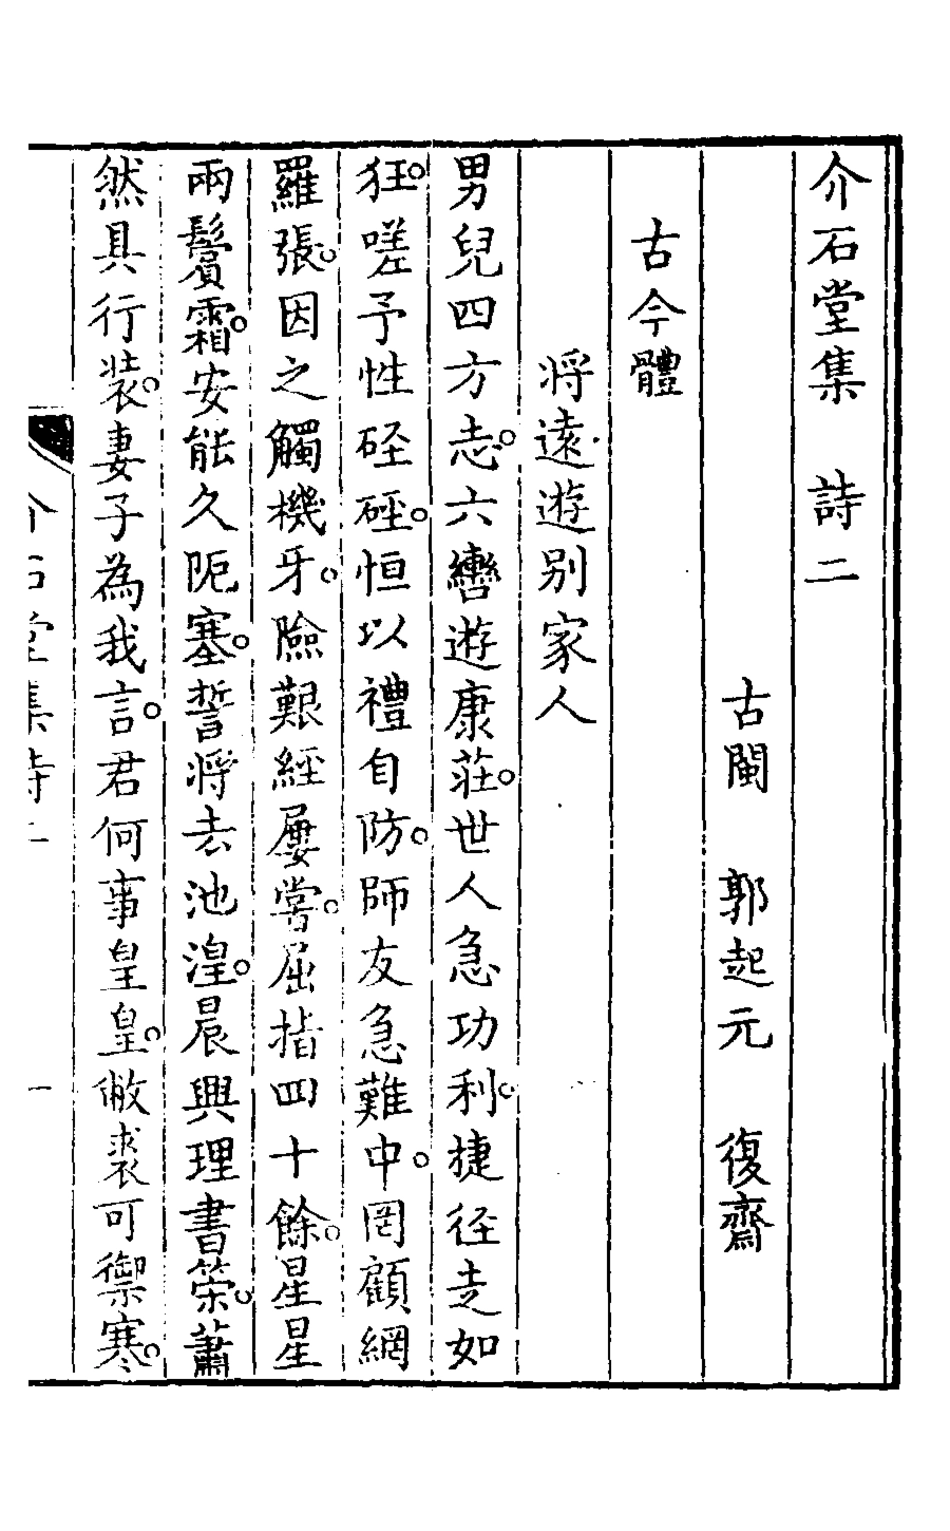 介石堂集　詩二
古閩　郭起元　復齋
古今體
將遠遊別家人
男兒四方志。六轡遊康莊。世人急功利。捷径走如
狂。嗟予性硜硜。恒以禮自防。師友急難中。罔顧網
羅張。因之觸機牙。險艱經屢嘗。屈指四十餘。星星
兩鬢霜。安能久阨塞。誓將去池湟。晨興理書策。蕭
然具行裝。妻子為我言。君何事皇皇。敝裘可禦寒。
介石堂集詩二　一